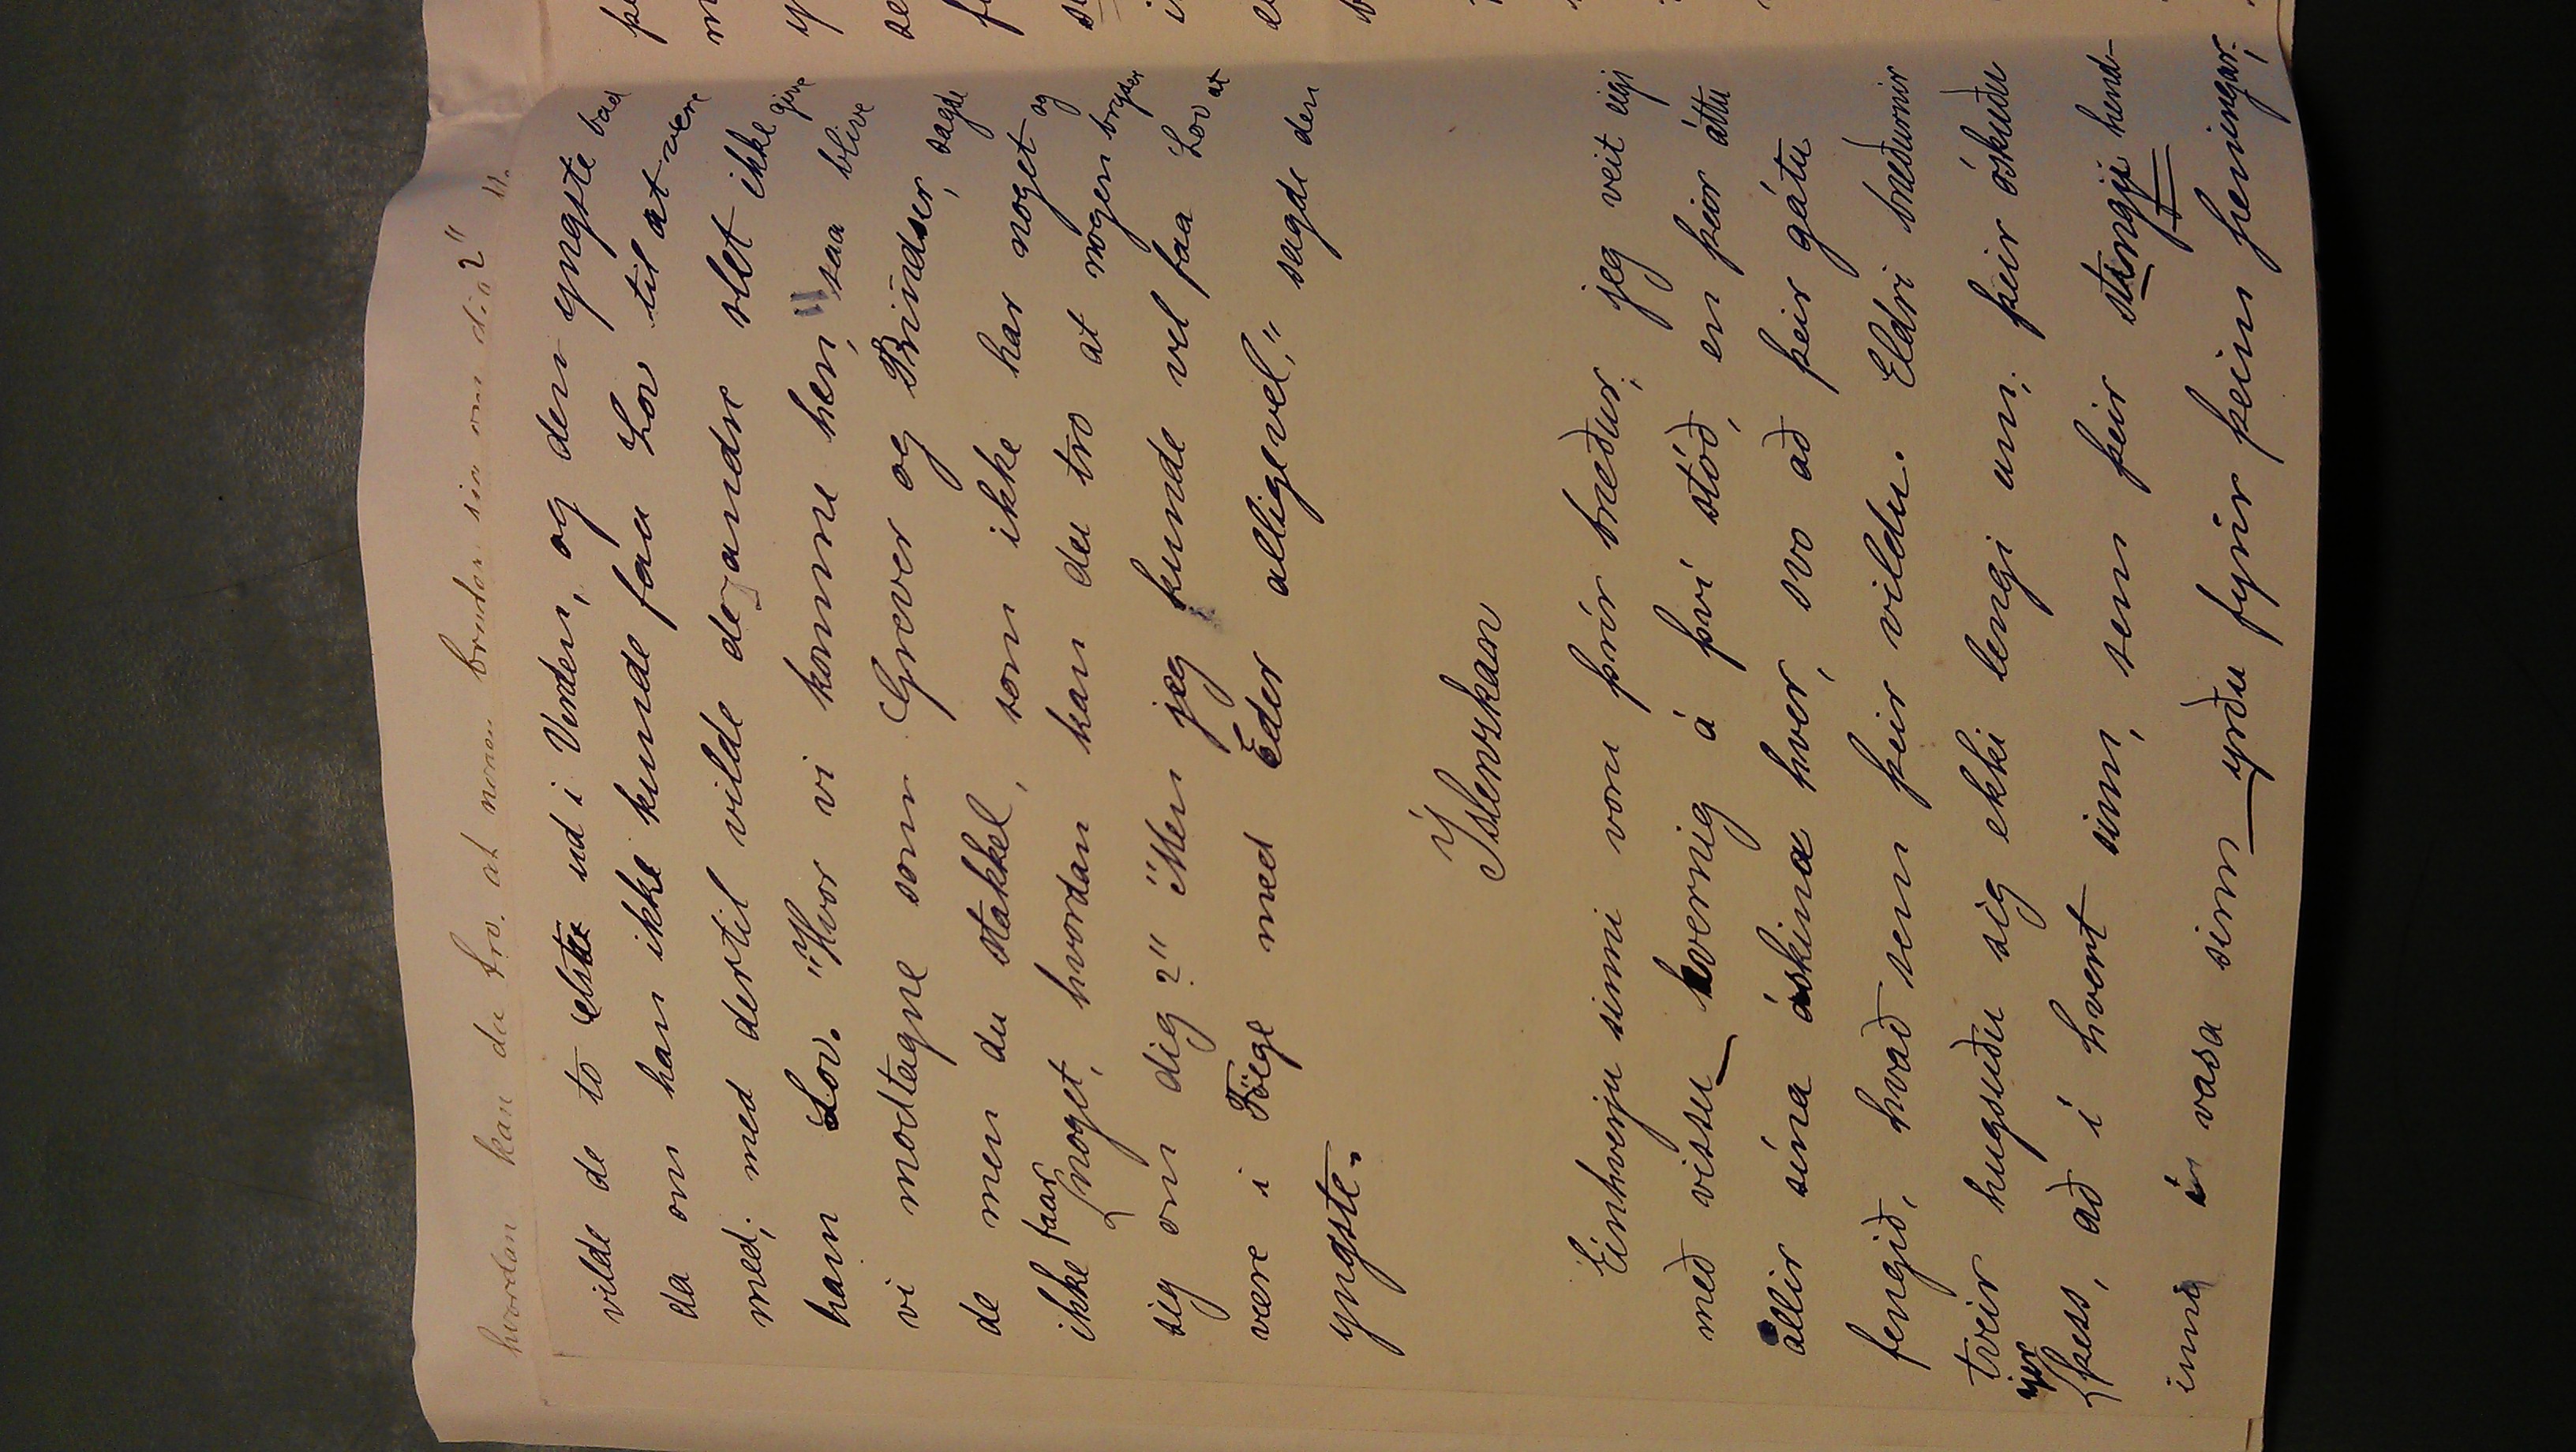 hvordan kan du tro, at nonen brinter sin om di.?" 11.
vilde de to elste ud i Verden, og den yngste bad
da om han ikke kunde faa Lov til at være
med; med dertil vilde de andre slet ikke give
ham Lov. "Hvor vi komme hen," saa blive
vi modtagne som Grever og Prindser, sagde
de men du stakkel, som ikke har noget og
ikke faar noget, hvordan kan du tro at nogen bryder
sig om dig?" "Men jeg kunde vel faa Lov at
være i Følge med Eder alligevel," sagde den
yngste.
Íslenzkan
Einhverju sinni voru þrír bræður; jeg veit eigi
með vissu hvernig á því stóð, en þeir áttu
allir sína óskina hver, svo að þeir gátu
fengið, hvað sem þeir vildu. Eldri bræðurnir
tveir hugsuðu sig ekki lengi um; þeir óskuðu
sjer þess, að í hvert sinn, sem þeir styngji hend-
inni í vasa sinn yrðu fyrir þeim peningar;